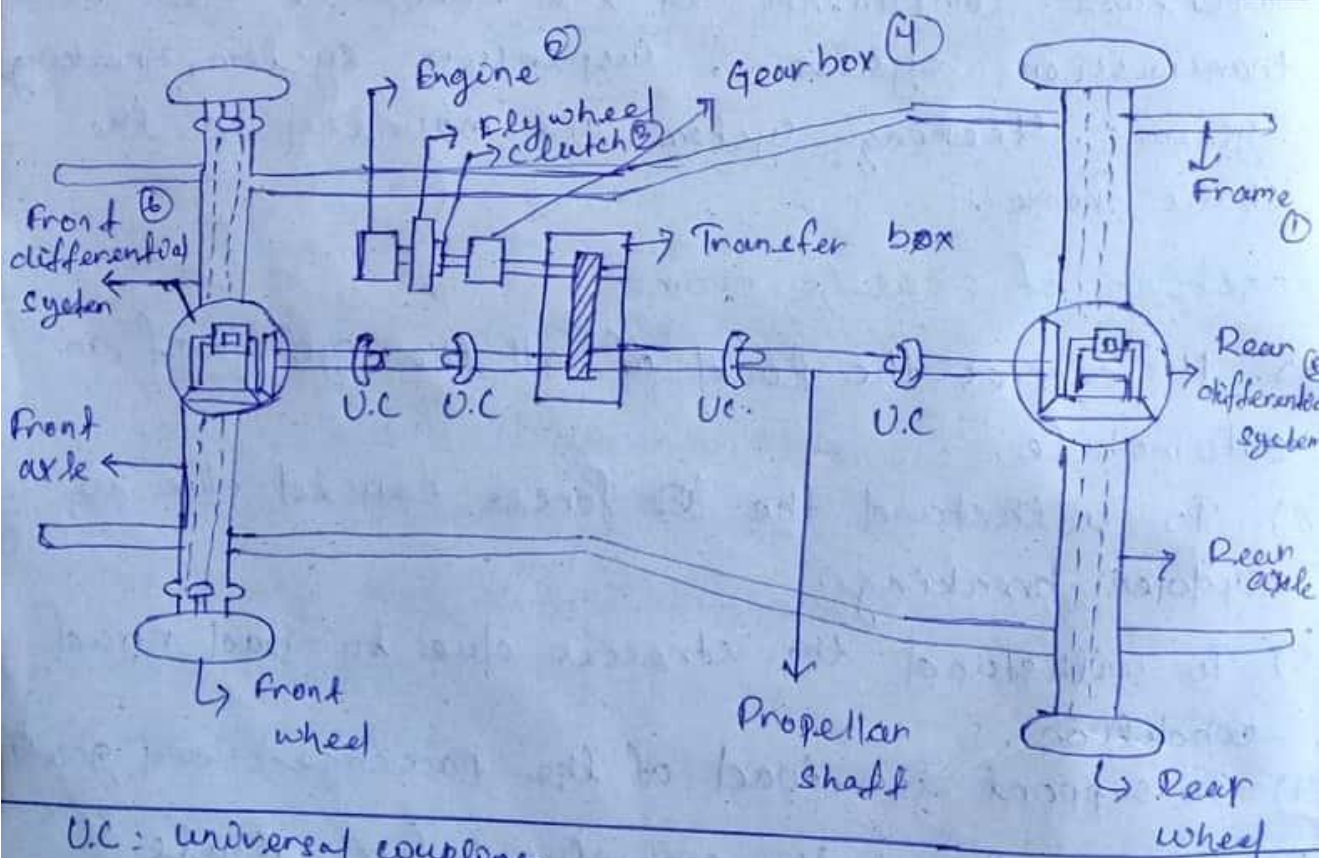 Engine ②
Flywheel
Clutch ③
Gear box ④
Frame
①
Front ⑥
differential
system
Transfer box
U.C
U.C
Uc.
U.C
Rear
differential
system
Front
axle
Rear
axle
Front
wheel
Propellar
shaft
Rear
wheel
U.C : universal coupling